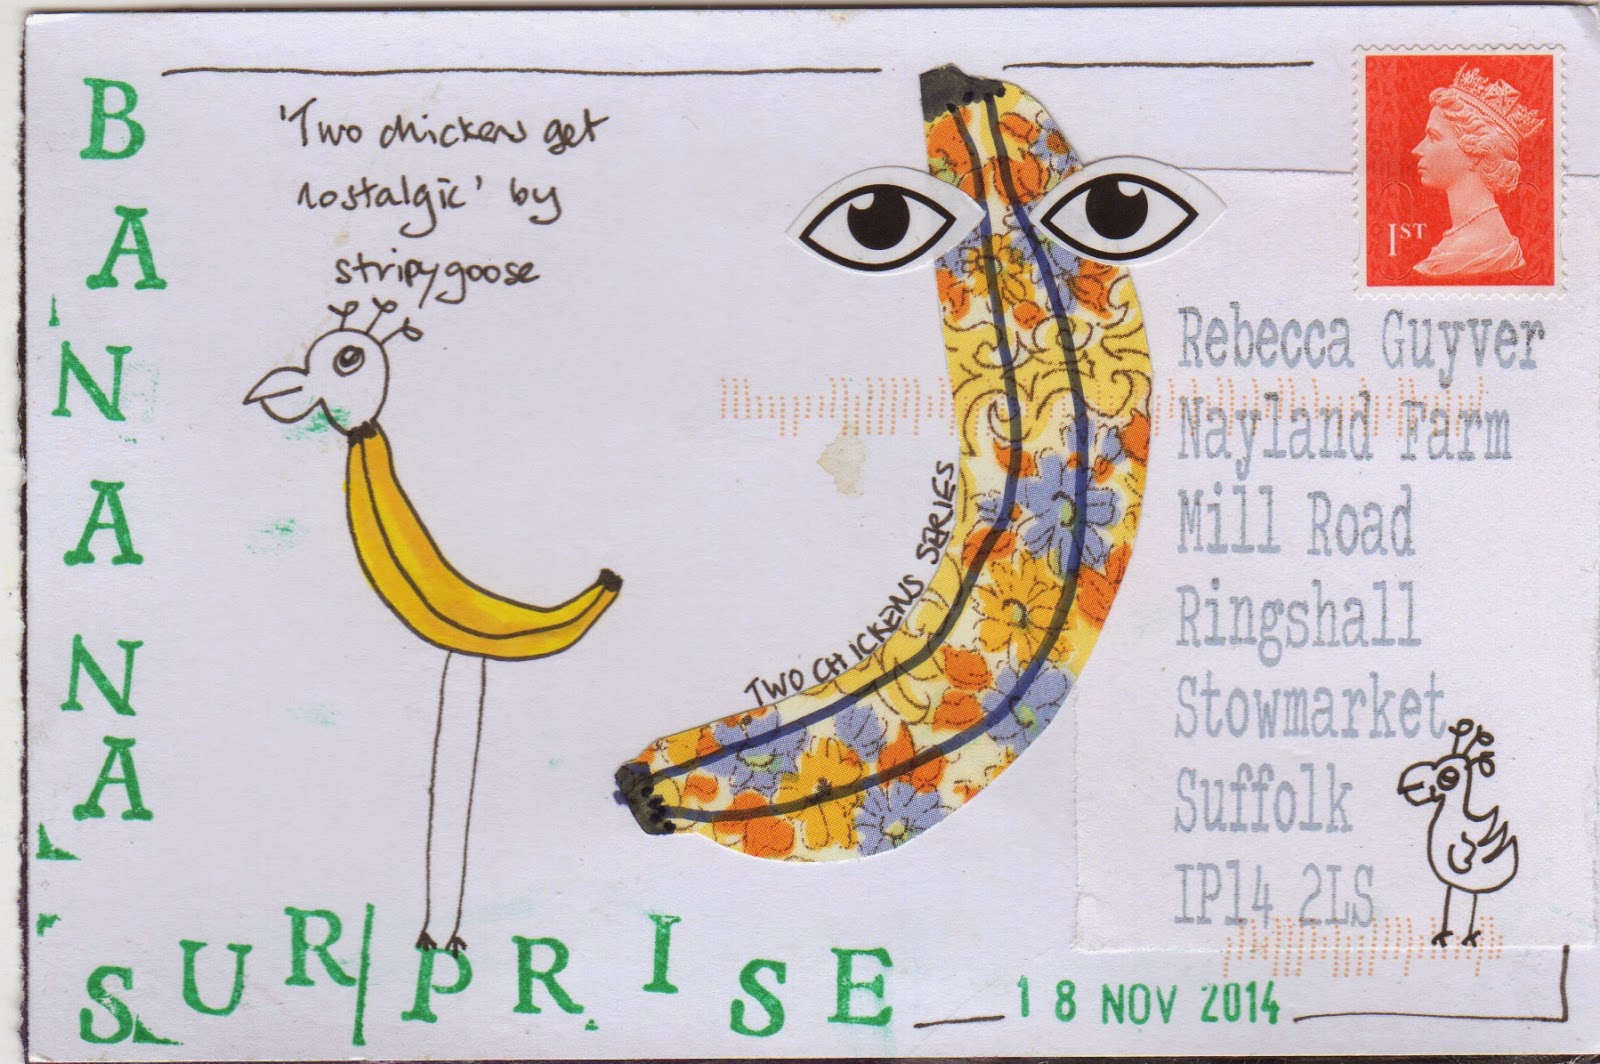 BANANA
SURPRISE
'Two chickens get
nostalgic' by
stripygoose
TWO CHICKENS SERIES
1ST
Rebecca Guyver
Nayland Farm
Mill Road
Ringshall
Stowmarket
Suffolk
IP14 2LS
18 NOV 2014